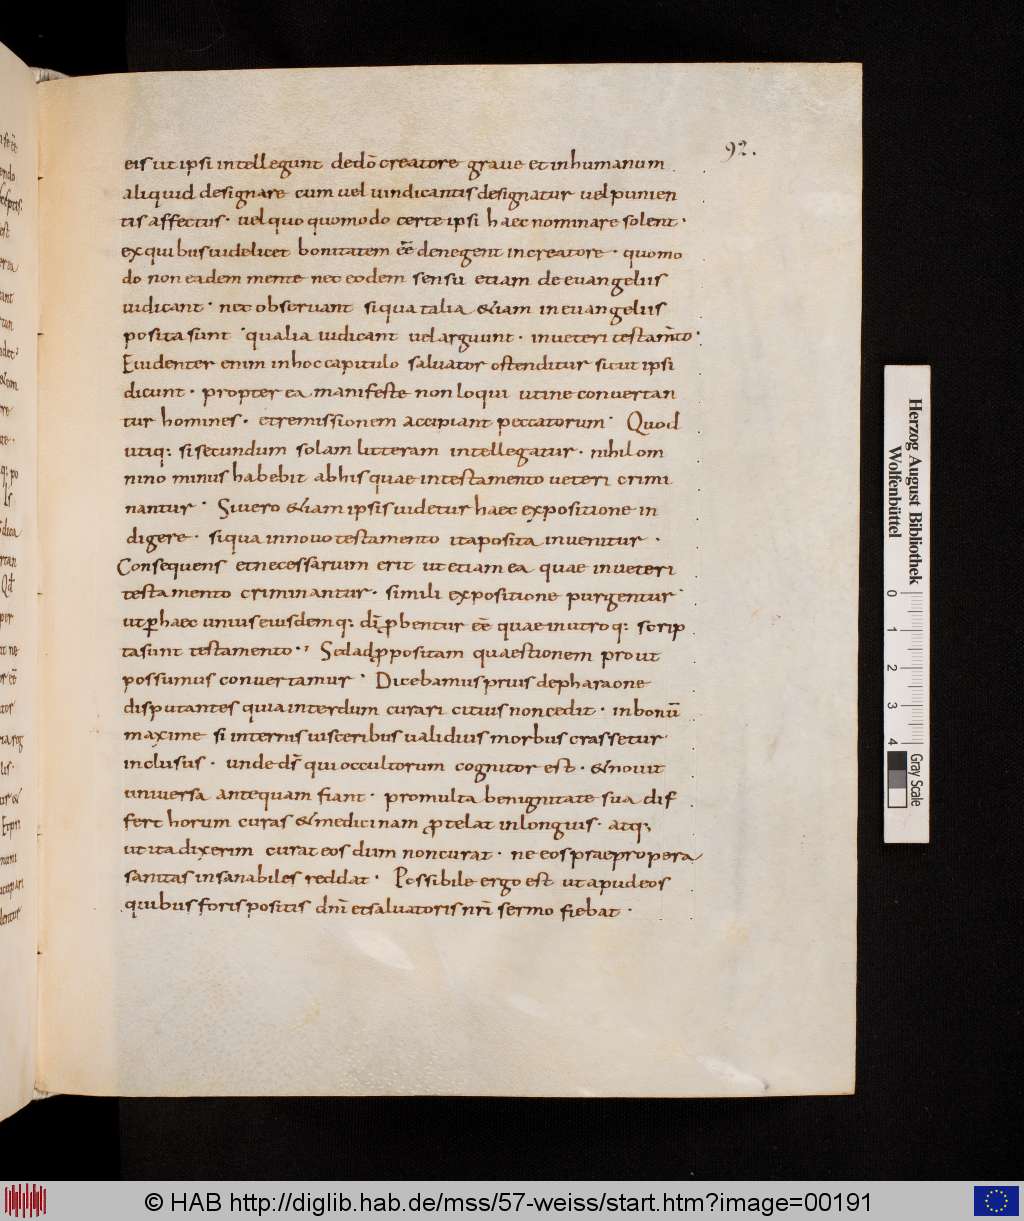 92.
eis ut ipsi intellegunt dedō creatore graue et inhumanum
aliquid designare cum uel uindicantis designatur uel punien
tis affectus · uel quo quomodo certe ipsi haec nominare solent ·
ex quibus uidelicet bonitatem eē denegent in creatore · quomo
do non eadem mente nec eodem sensu etiam de euangeliis
iudicant · nec obseruant siqua talia &iam in euangeliis
posita sunt qualia iudicant uel arguunt · in ueteri testam̄to ·
Euidenter enim in hoc capitulo saluator ostenditur sicut ipsi
dicunt · propter ea manifeste non loqui ut ne conuertan
tur homines · et remissionem accipiant peccatorum · Quod
utiq: si secundum solam litteram intellegatur · nihil om
nino minus habebit ab his quae in testamento ueteri crimi
nantur · Si uero &iam ipsis uidetur haec expositione in
digere · siqua in nouo testamento ita posita inuenitur ·
Consequens et necessarium erit ut etiam ea quae in ueteri
testamento criminantur · simili expositione purgentur ·
ut ꝑ haec unius eiusdemq: dī ꝓbentur eē quae in utroq: scrip
ta sunt testamento · Sed ad ꝓpositam quaestionem prout
possumus conuertamur · Dicebamus prius de pharaone
disputantes quia interdum curari citius non cedit · in bonū
maxime si internis uisceribus ualidius morbus crassetur
inclusus · unde ds̄ qui occultorum cognitor est · & nouit
uniuersa antequam fiant · pro multa benignitate sua dif
fert horum curas & medicinam ꝓtelat in longius · atq;
ut ita dixerim curat eos dum non curat · ne eos praepropera
sanitas insanabiles reddat · Possibile ergo est ut apud eos
quibus foris positis dn̄i et saluatoris nr̄i sermo fiebat ·
Herzog August Bibliothek
Wolfenbüttel
0 1 2 3 4
Gray Scale
© HAB http://diglib.hab.de/mss/57-weiss/start.htm?image=00191